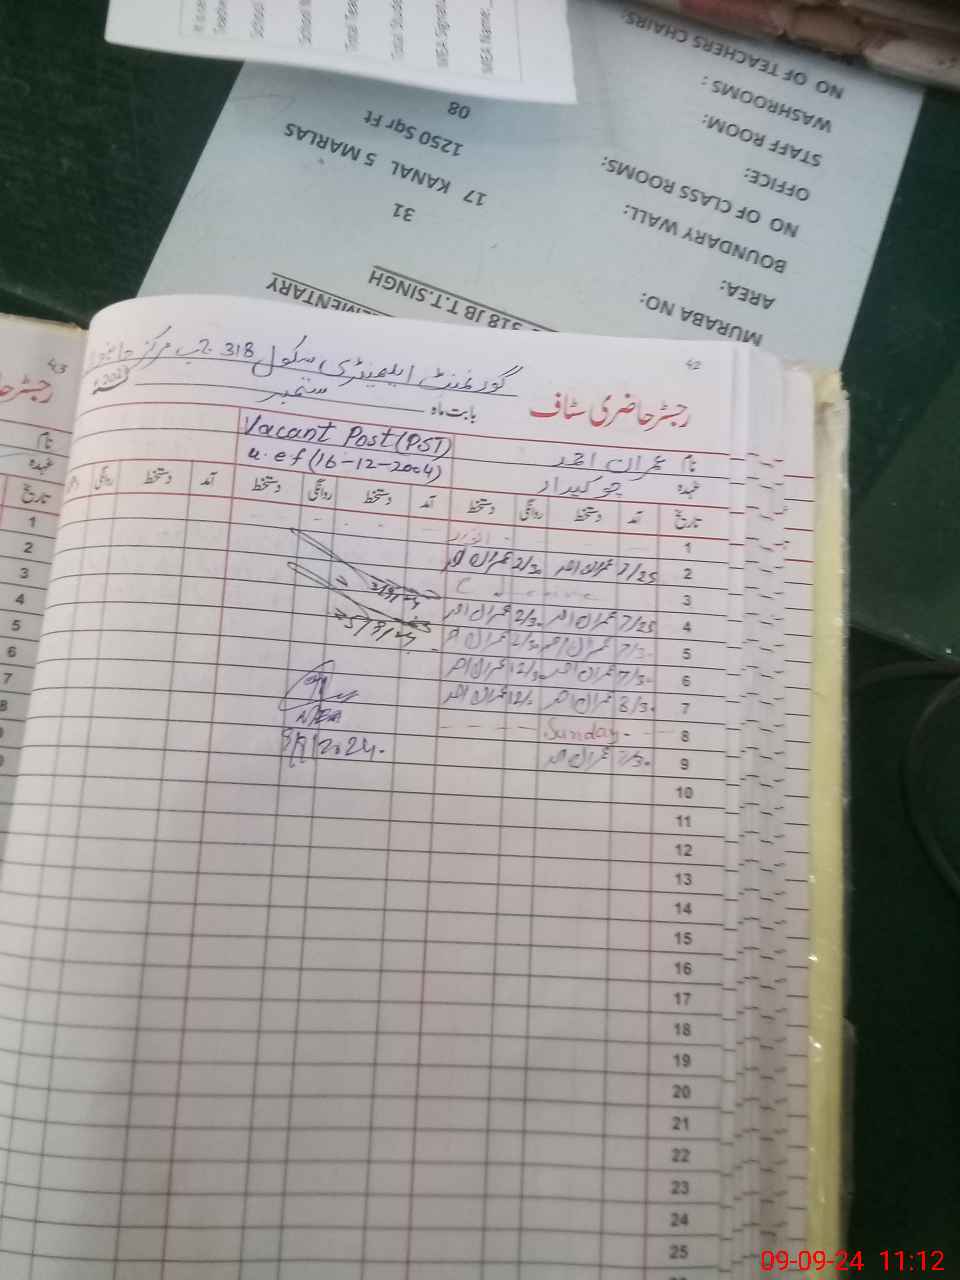 NO OF TEACHERS CHAIRS:
WASHROOMS:
STAFF ROOM:
OFFICE:
NO OF CLASS ROOMS: 08
BOUNDARY WALL: 1250 Sqr Ft
AREA: 17 KANAL 5 MARLAS
MURABA NO: 31
318 JB T.T.SINGH
42
گورنمنٹ ایلیمنٹری سکول 318 ج ب مرکز
رجسٹر حاضری سٹاف
بابت ماہ ستمبر
نام عمران احمد
Vacant Post (PST)
عہدہ چوکیدار
w.ef (16-12-2004)
تاریخ آمد دستخط روانگی دستخط آمد دستخط روانگی دستخط آمد دستخط روانگی
1 اتوار
2 7/25 عمران احمد 2/30 عمران احمد
3
4 7/25 عمران احمد 2/30 عمران احمد
5 7/30 عمران احمد 2/30 عمران احمد
6 7/30 عمران احمد 12/30 عمران احمد
7 8/30 عمران احمد 12/30 عمران احمد
8 Sunday
9 7/30 عمران احمد
9/9/2024
10
11
12
13
14
15
16
17
18
19
20
21
22
23
24
25
43
نام
عہدہ
تاریخ
1
2
3
4
5
6
7
8
09-09-24 11:12